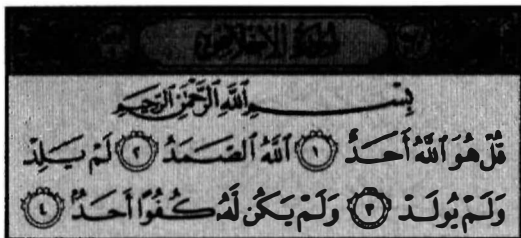 سورة الإخلاص
بِسْمِ اللَّهِ الرَّحْمَٰنِ الرَّحِيمِ
قُلْ هُوَ اللَّهُ أَحَدٌ ١ اللَّهُ الصَّمَدُ ٢ لَمْ يَلِدْ
وَلَمْ يُولَدْ ٣ وَلَمْ يَكُن لَّهُ كُفُوًا أَحَدٌ ٤